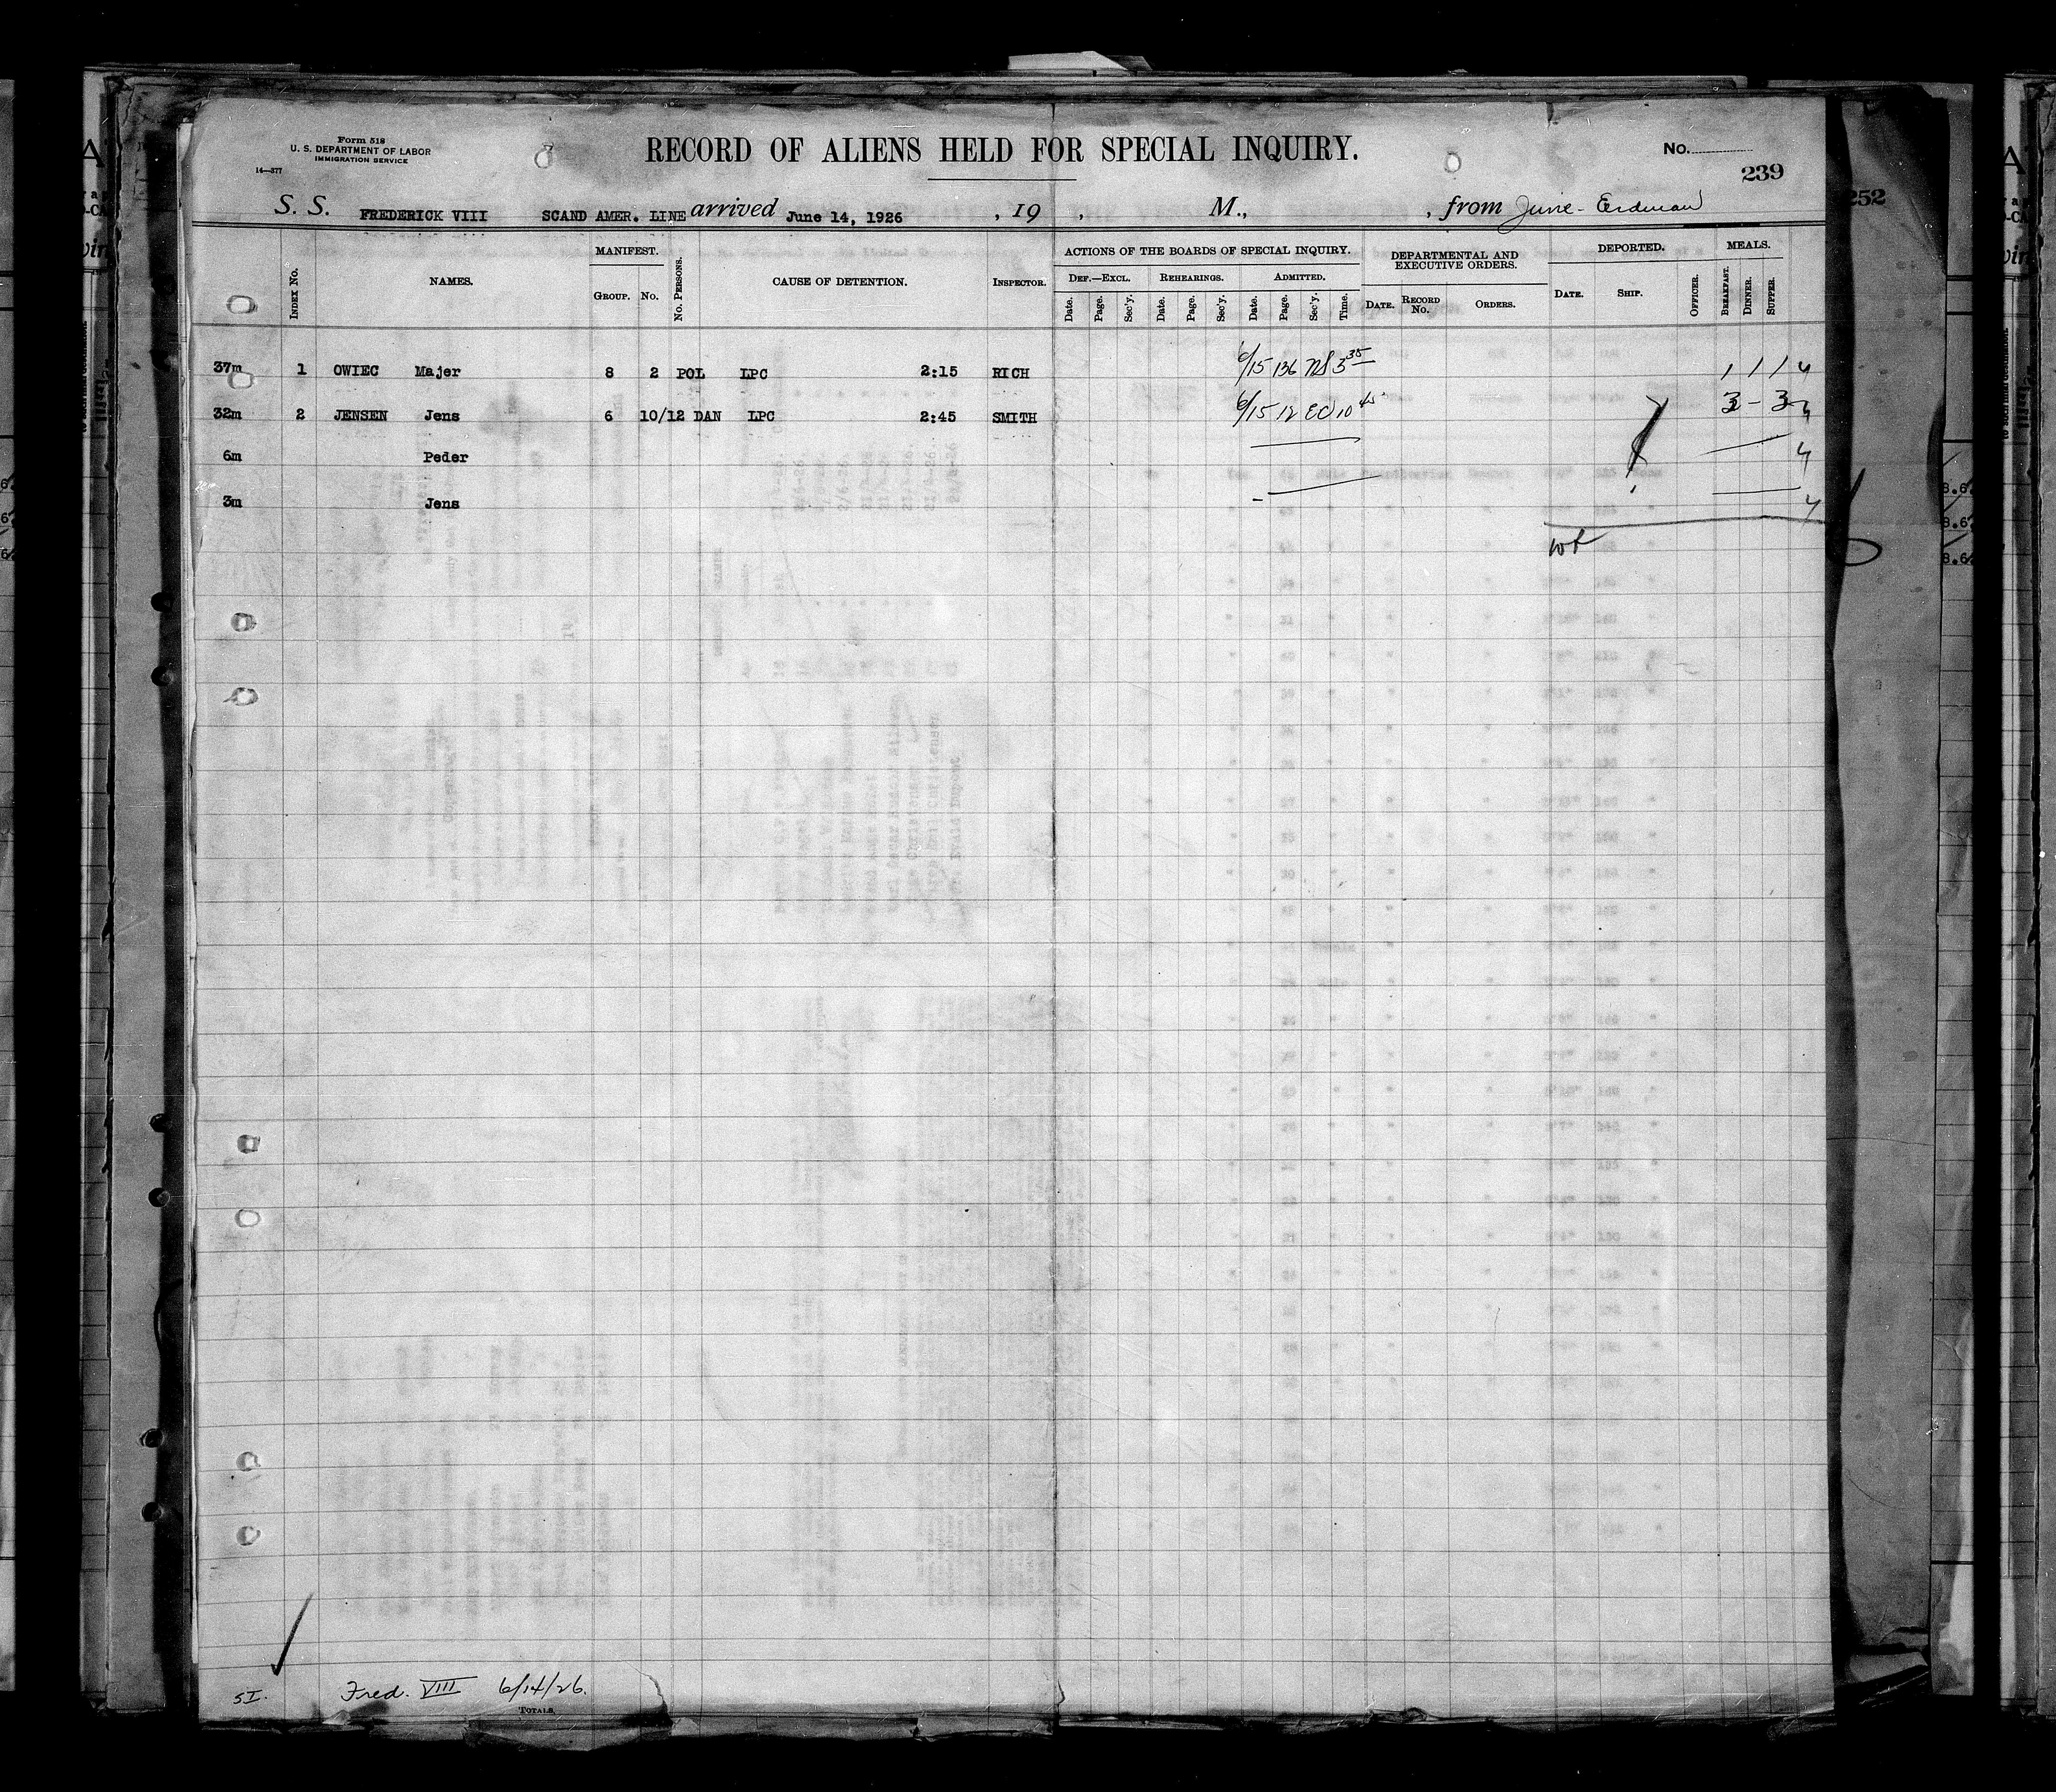 Form 518
U. S. DEPARTMENT OF LABOR
IMMIGRATION SERVICE
14—377
RECORD OF ALIENS HELD FOR SPECIAL INQUIRY.
No.
239
252
S. S. FREDERICK VIII SCAND AMER. LINE arrived June 14, 1926 , 19 , M., , from June - Erdman
INDEX No. NAMES. MANIFEST. GROUP. No. No. PERSONS. CAUSE OF DETENTION. INSPECTOR. ACTIONS OF THE BOARDS OF SPECIAL INQUIRY. DEPARTMENTAL AND EXECUTIVE ORDERS. DEPORTED. MEALS.
DEF.—EXCL. REHEARINGS. ADMITTED.
Date. Page. Sec'y. Date. Page. Sec'y. Date. Page. Sec'y. Time. DATE. RECORD No. ORDERS. DATE. SHIP. OFFICER. BREAKFAST. DINNER. SUPPER.
37m 1 OWIEC Majer 8 2 POL LPC 2:15 RICH 6/15 136 NS 3 35 1 1 1 4
32m 2 JENSEN Jens 6 10/12 DAN LPC 2:45 SMITH 6/15 12 EC 10 45 3 - 3 4
6m Peder 4
3m Jens 4
SI. Fred. VIII 6/14/26.
TOTALS.